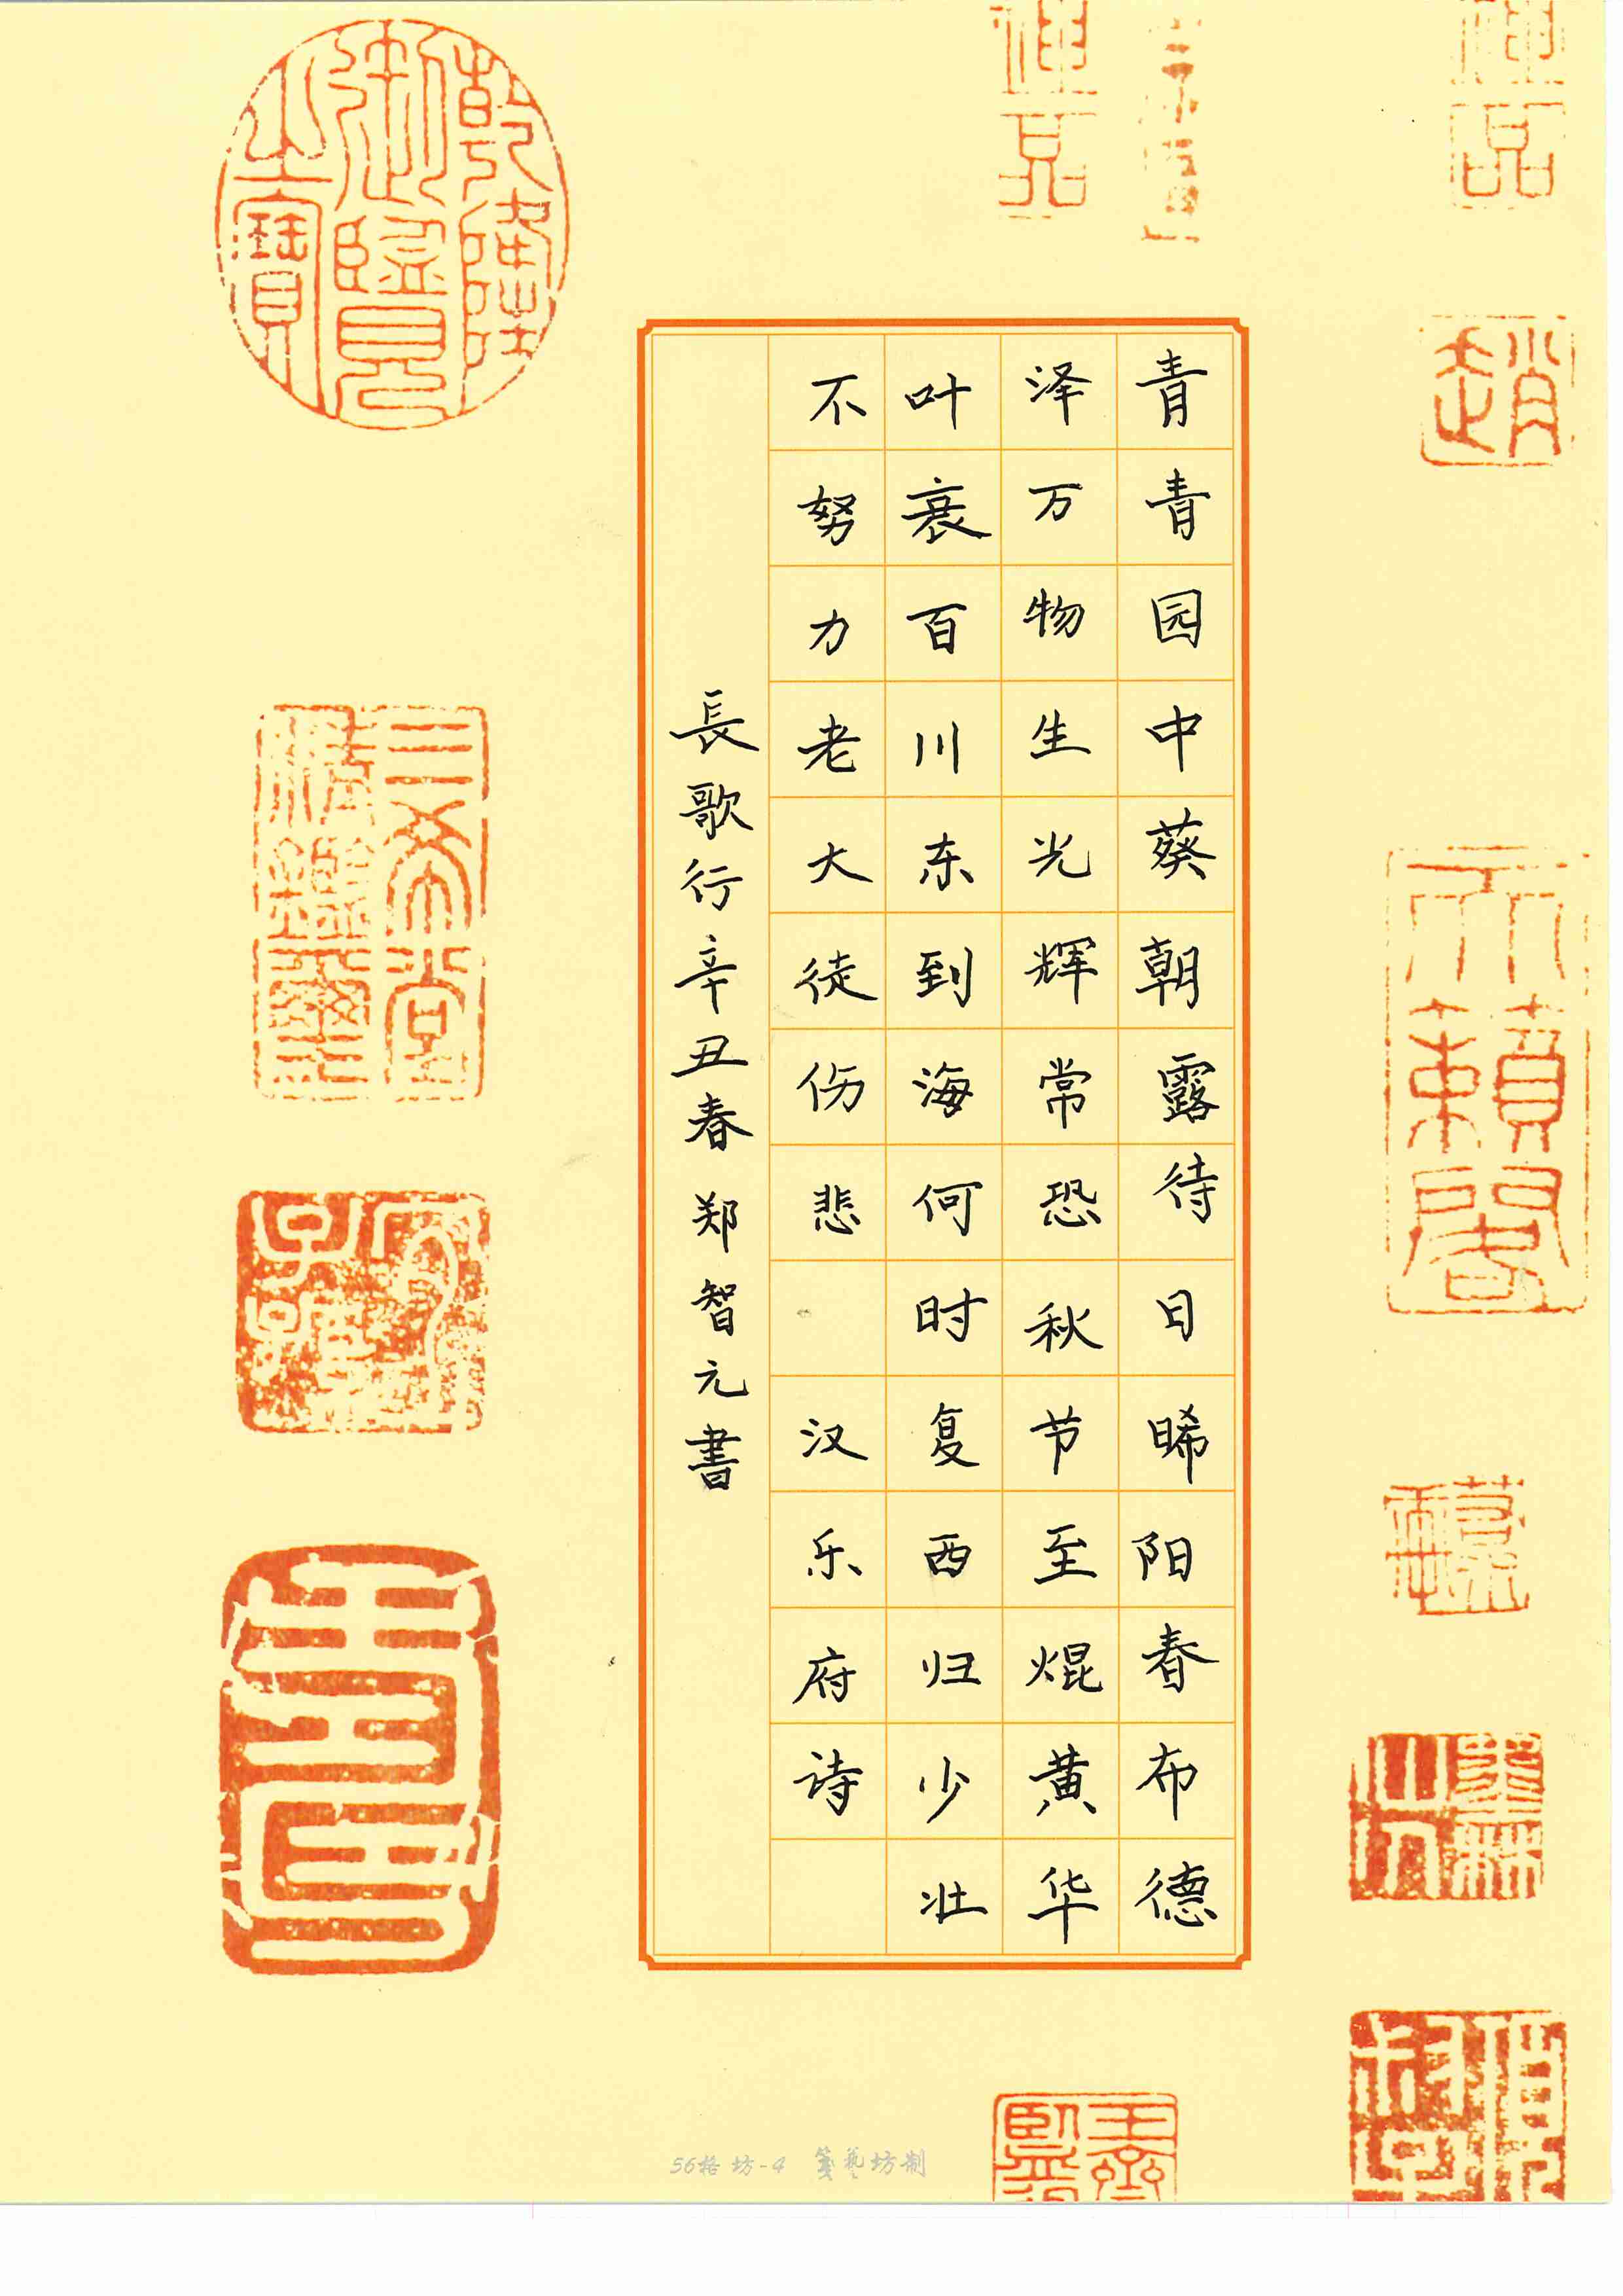 青青园中葵朝露待日晞阳春布德
泽万物生光辉常恐秋节至焜黄华
叶衰百川东到海何时复西归少壮
不努力老大徒伤悲 汉乐府诗
長歌行辛丑春郑智元書
乾隆御覽之寶
三希堂精鑒璽
宜子孫
趙
天籟閣
56格 坊-4 笺藝坊制